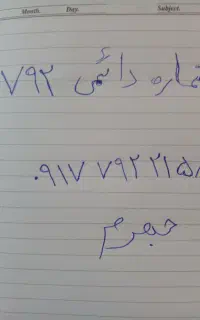 Month Day Subject
ماره دائمی ۷۹۲
۰۹۱۷ ۷۹۲ ۲۱۵۸
جهرم